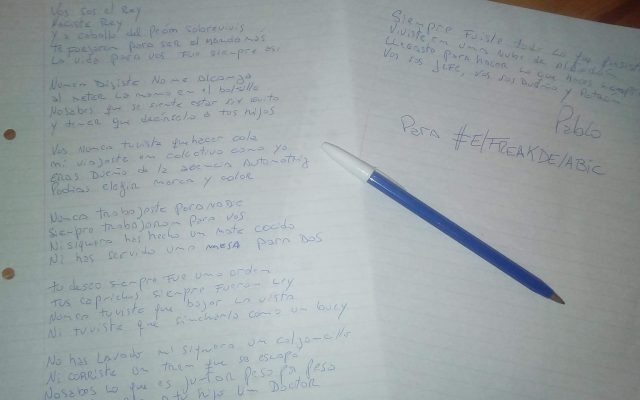 Vos sos el Rey
Naciste Rey
Y a caballo del Peón sobrevivis
te forjaron para ser el mandamás
La vida para vos fue siempre así
Nunca Dijiste No me alcanza
al meter la mano en el bolsillo
No sabes que se siente estar sin guito
y tener que decírselo a tus hijos
Vos nunca tuviste que hacer cola
ni viajaste en colectivo como yo
eras Dueño de la agencia Automotriz
Podías elegir marca y color
Nunca trabajaste para Nadie
siempre trabajaron para vos
Ni siquiera has hecho un mate cocido
Ni has servido una mesa para Dos
tu deseo siempre fue una orden
Tus caprichos siempre fueron Ley
Nunca tuviste que bajar la vista
Ni tuviste que sincharla como un buey
No has lavado ni siquiera un calzoncillo
Ni corriste un tren que se escapó
No sabes lo que es juntar peso por peso
tu hijo un Doctor
Siempre Fuiste todo lo que
Viviste en una nube de Algodón
Llegaste para hacer lo que
Vos sos jefe, vos sos Dueño y Patrón
Pablo
Para #ElFREAKDElABIC